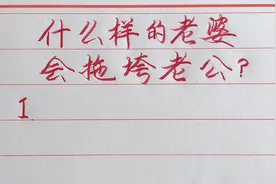 什么样的老婆
会拖垮老公?
1.